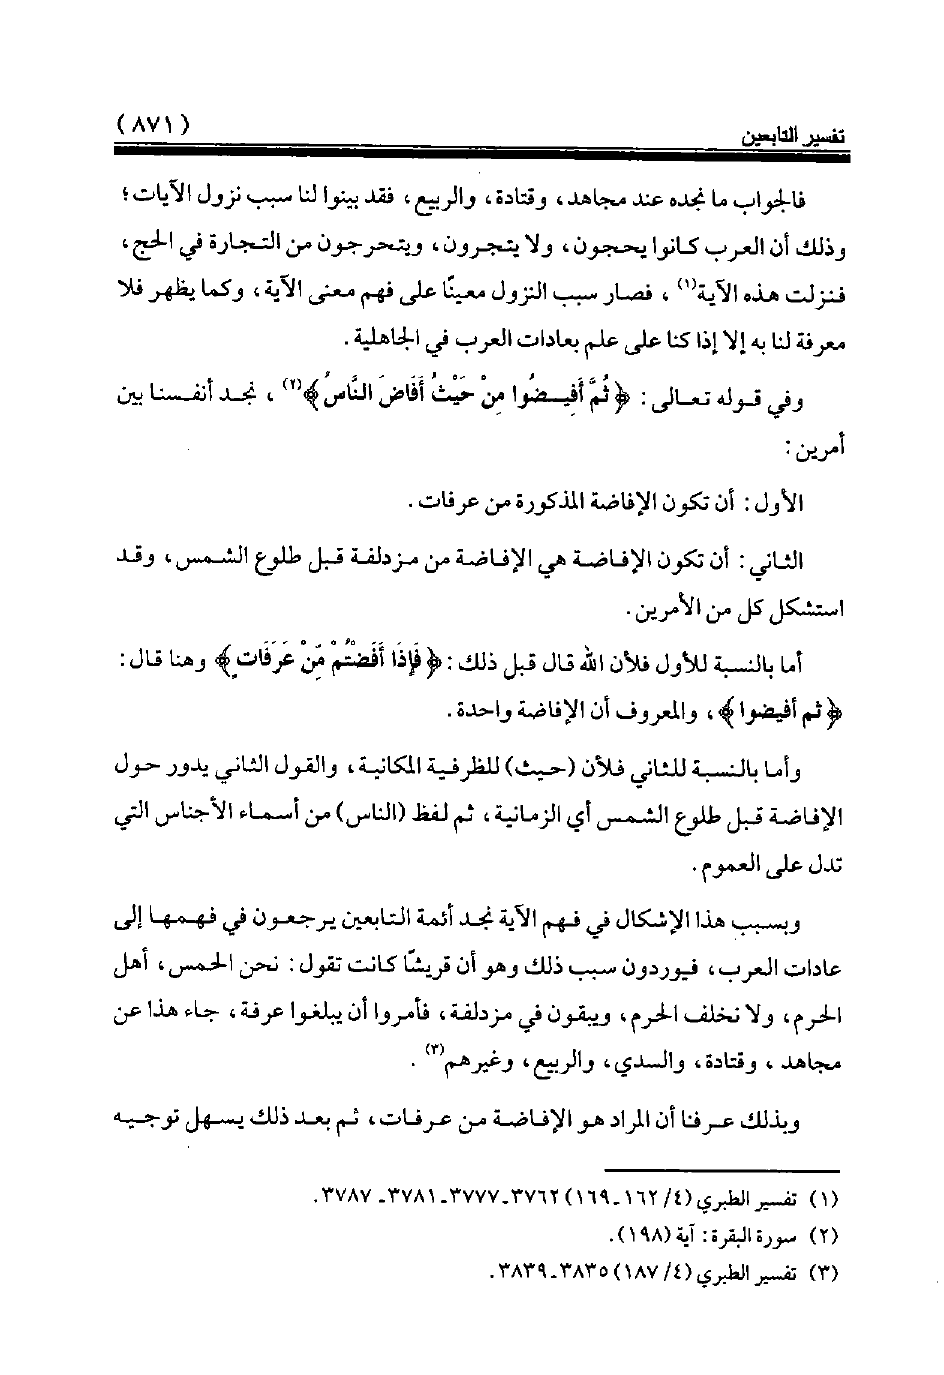 تفسير التابعين
(٨٧١)
فالجواب ما نجده عند مجاهد، وقتادة، والربيع، فقد بينوا لنا سبب نزول الآيات؛
وذلك أن العرب كانوا يحجون، ولا يتجرون، ويتحرجون من التجارة في الحج،
فنزلت هذه الآية(١)، فصار سبب النزول معينًا على فهم معنى الآية، وكما يظهر فلا
معرفة لنا به إلا إذا كنا على علم بعادات العرب في الجاهلية.
وفي قوله تعالى: ﴿ثُمَّ أَفِيضُوا مِنْ حَيْثُ أَفَاضَ النَّاسُ﴾(٢)، نجد أنفسنا بين
أمرين:
الأول: أن تكون الإفاضة المذكورة من عرفات.
الثاني: أن تكون الإفاضة هي الإفاضة من مزدلفة قبل طلوع الشمس، وقد
استشكل كل من الأمرين.
أما بالنسبة للأول فلأن الله قال قبل ذلك: ﴿فَإِذَا أَفَضْتُمْ مِّنْ عَرَفَاتٍ﴾ وهنا قال:
﴿ثم أفيضوا﴾، والمعروف أن الإفاضة واحدة.
وأما بالنسبة للثاني فلأن (حيث) للظرفية المكانية، والقول الثاني يدور حول
الإفاضة قبل طلوع الشمس أي الزمانية، ثم لفظ (الناس) من أسماء الأجناس التي
تدل على العموم.
وبسبب هذا الإشكال في فهم الآية نجد أئمة التابعين يرجعون في فهمها إلى
عادات العرب، فيوردون سبب ذلك وهو أن قريشًا كانت تقول: نحن الحمس، أهل
الحرم، ولا نخلف الحرم، ويبقون في مزدلفة، فأمروا أن يبلغوا عرفة، جاء هذا عن
مجاهد، وقتادة، والسدي، والربيع، وغيرهم(٣).
وبذلك عرفنا أن المراد هو الإفاضة من عرفات، ثم بعد ذلك يسهل توجيه
(١) تفسير الطبري (٤/ ١٦٢-١٦٩) ٣٧٦٢-٣٧٧٧- ٣٧٨١- ٣٧٨٧.
(٢) سورة البقرة: آية (١٩٨).
(٣) تفسير الطبري (٤/ ١٨٧) ٣٨٣٥-٣٨٣٩.